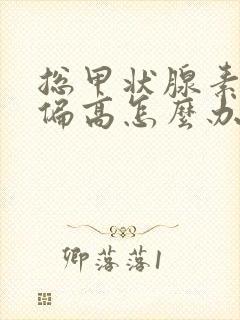 总甲状腺素
偏高怎麼办
卿落落1